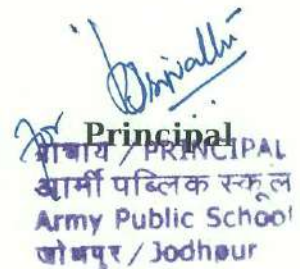 For Principal
प्राचार्य / PRINCIPAL
आर्मी पब्लिक स्कूल
Army Public School
जोधपुर / Jodhpur